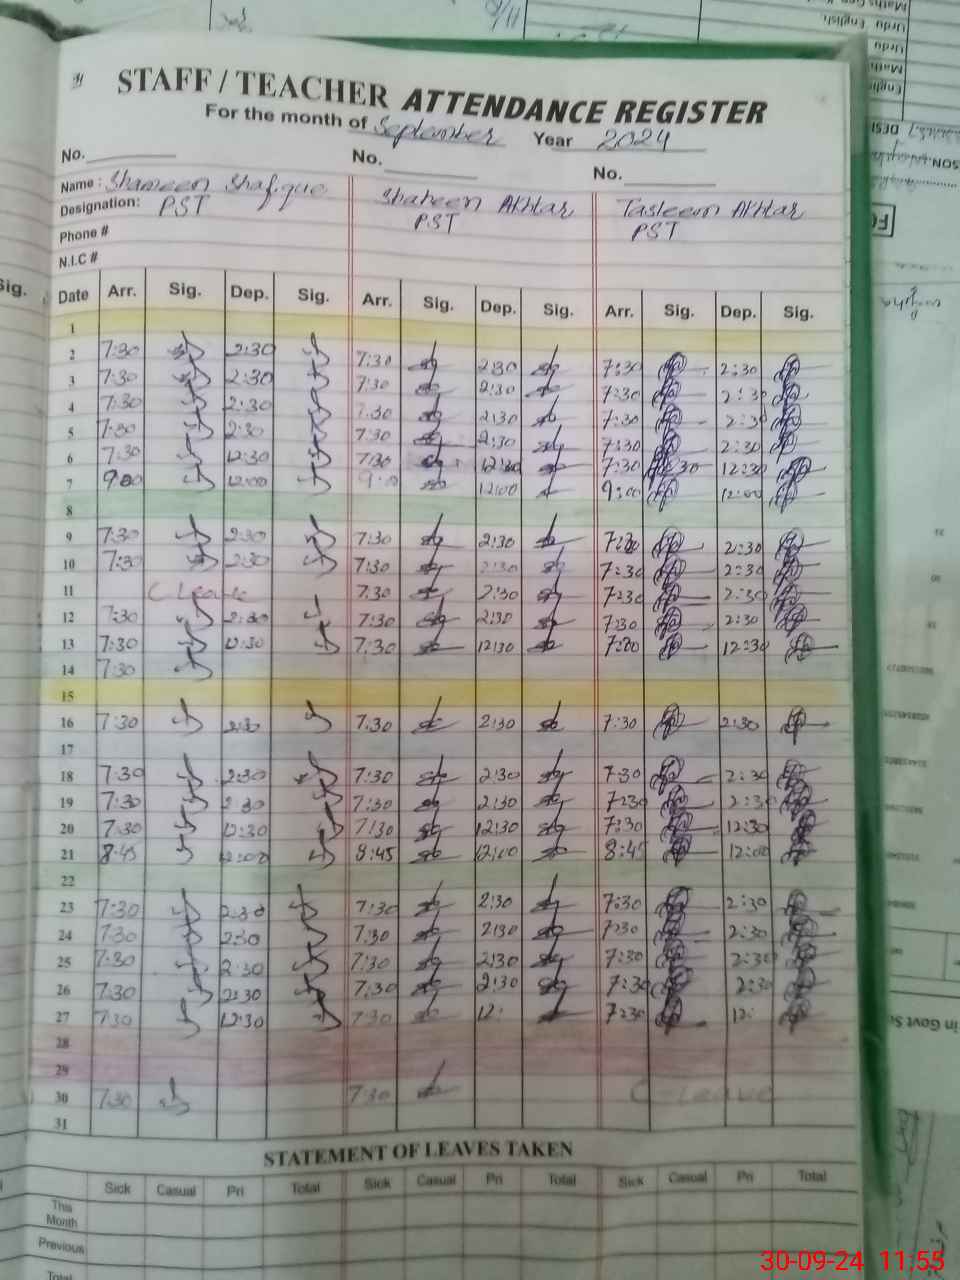 STAFF / TEACHER ATTENDANCE REGISTER
For the month of September Year 2024
No. No. No.
Name : Shameen Shafique Shaheen Akhtar Tasleem Akhtar
Designation: PST PST PST
Phone #
N.I.C #
Date Arr. Sig. Dep. Sig. Arr. Sig. Dep. Sig. Arr. Sig. Dep. Sig.
1
2 7:30 2:30 7:30 2:30 7:30 2:30
3 7:30 2:30 7:30 2:30 7:30 2:30
4 7:30 2:30 7:30 2:30 7:30 2:30
5 7:30 2:30 7:30 2:30 7:30 2:30
6 7:30 12:30 7:30 12:30 7:30 12:30
7 9:00 12:00 9:00 12:00 9:00 12:00
8
9 7:30 2:30 7:30 2:30 7:30 2:30
10 7:30 2:30 7:30 2:30 7:30 2:30
11 C Leave 7:30 2:30 7:30 2:30
12 7:30 2:30 7:30 2:30 7:30 2:30
13 7:30 12:30 7:30 12:30 7:00 12:30
14 7:30
15
16 7:30 2:30 7:30 2:30 7:30 2:30
17
18 7:30 2:30 7:30 2:30 7:30 2:30
19 7:30 2:30 7:30 2:30 7:30 2:30
20 7:30 12:30 7:30 12:30 7:30 12:30
21 8:45 12:00 8:45 12:00 8:45 12:00
22
23 7:30 2:30 7:30 2:30 7:30 2:30
24 7:30 2:30 7:30 2:30 7:30 2:30
25 7:30 2:30 7:30 2:30 7:30 2:30
26 7:30 2:30 7:30 2:30 7:30 2:30
27 7:30 12:30 7:30 12: 7:30 12:
28
29
30 7:30 7:30 C-Leave
31
STATEMENT OF LEAVES TAKEN
Sick Casual Pri Total Sick Casual Pri Total Sick Casual Pri Total
This Month
Previous
Total
30-09-24 11:55